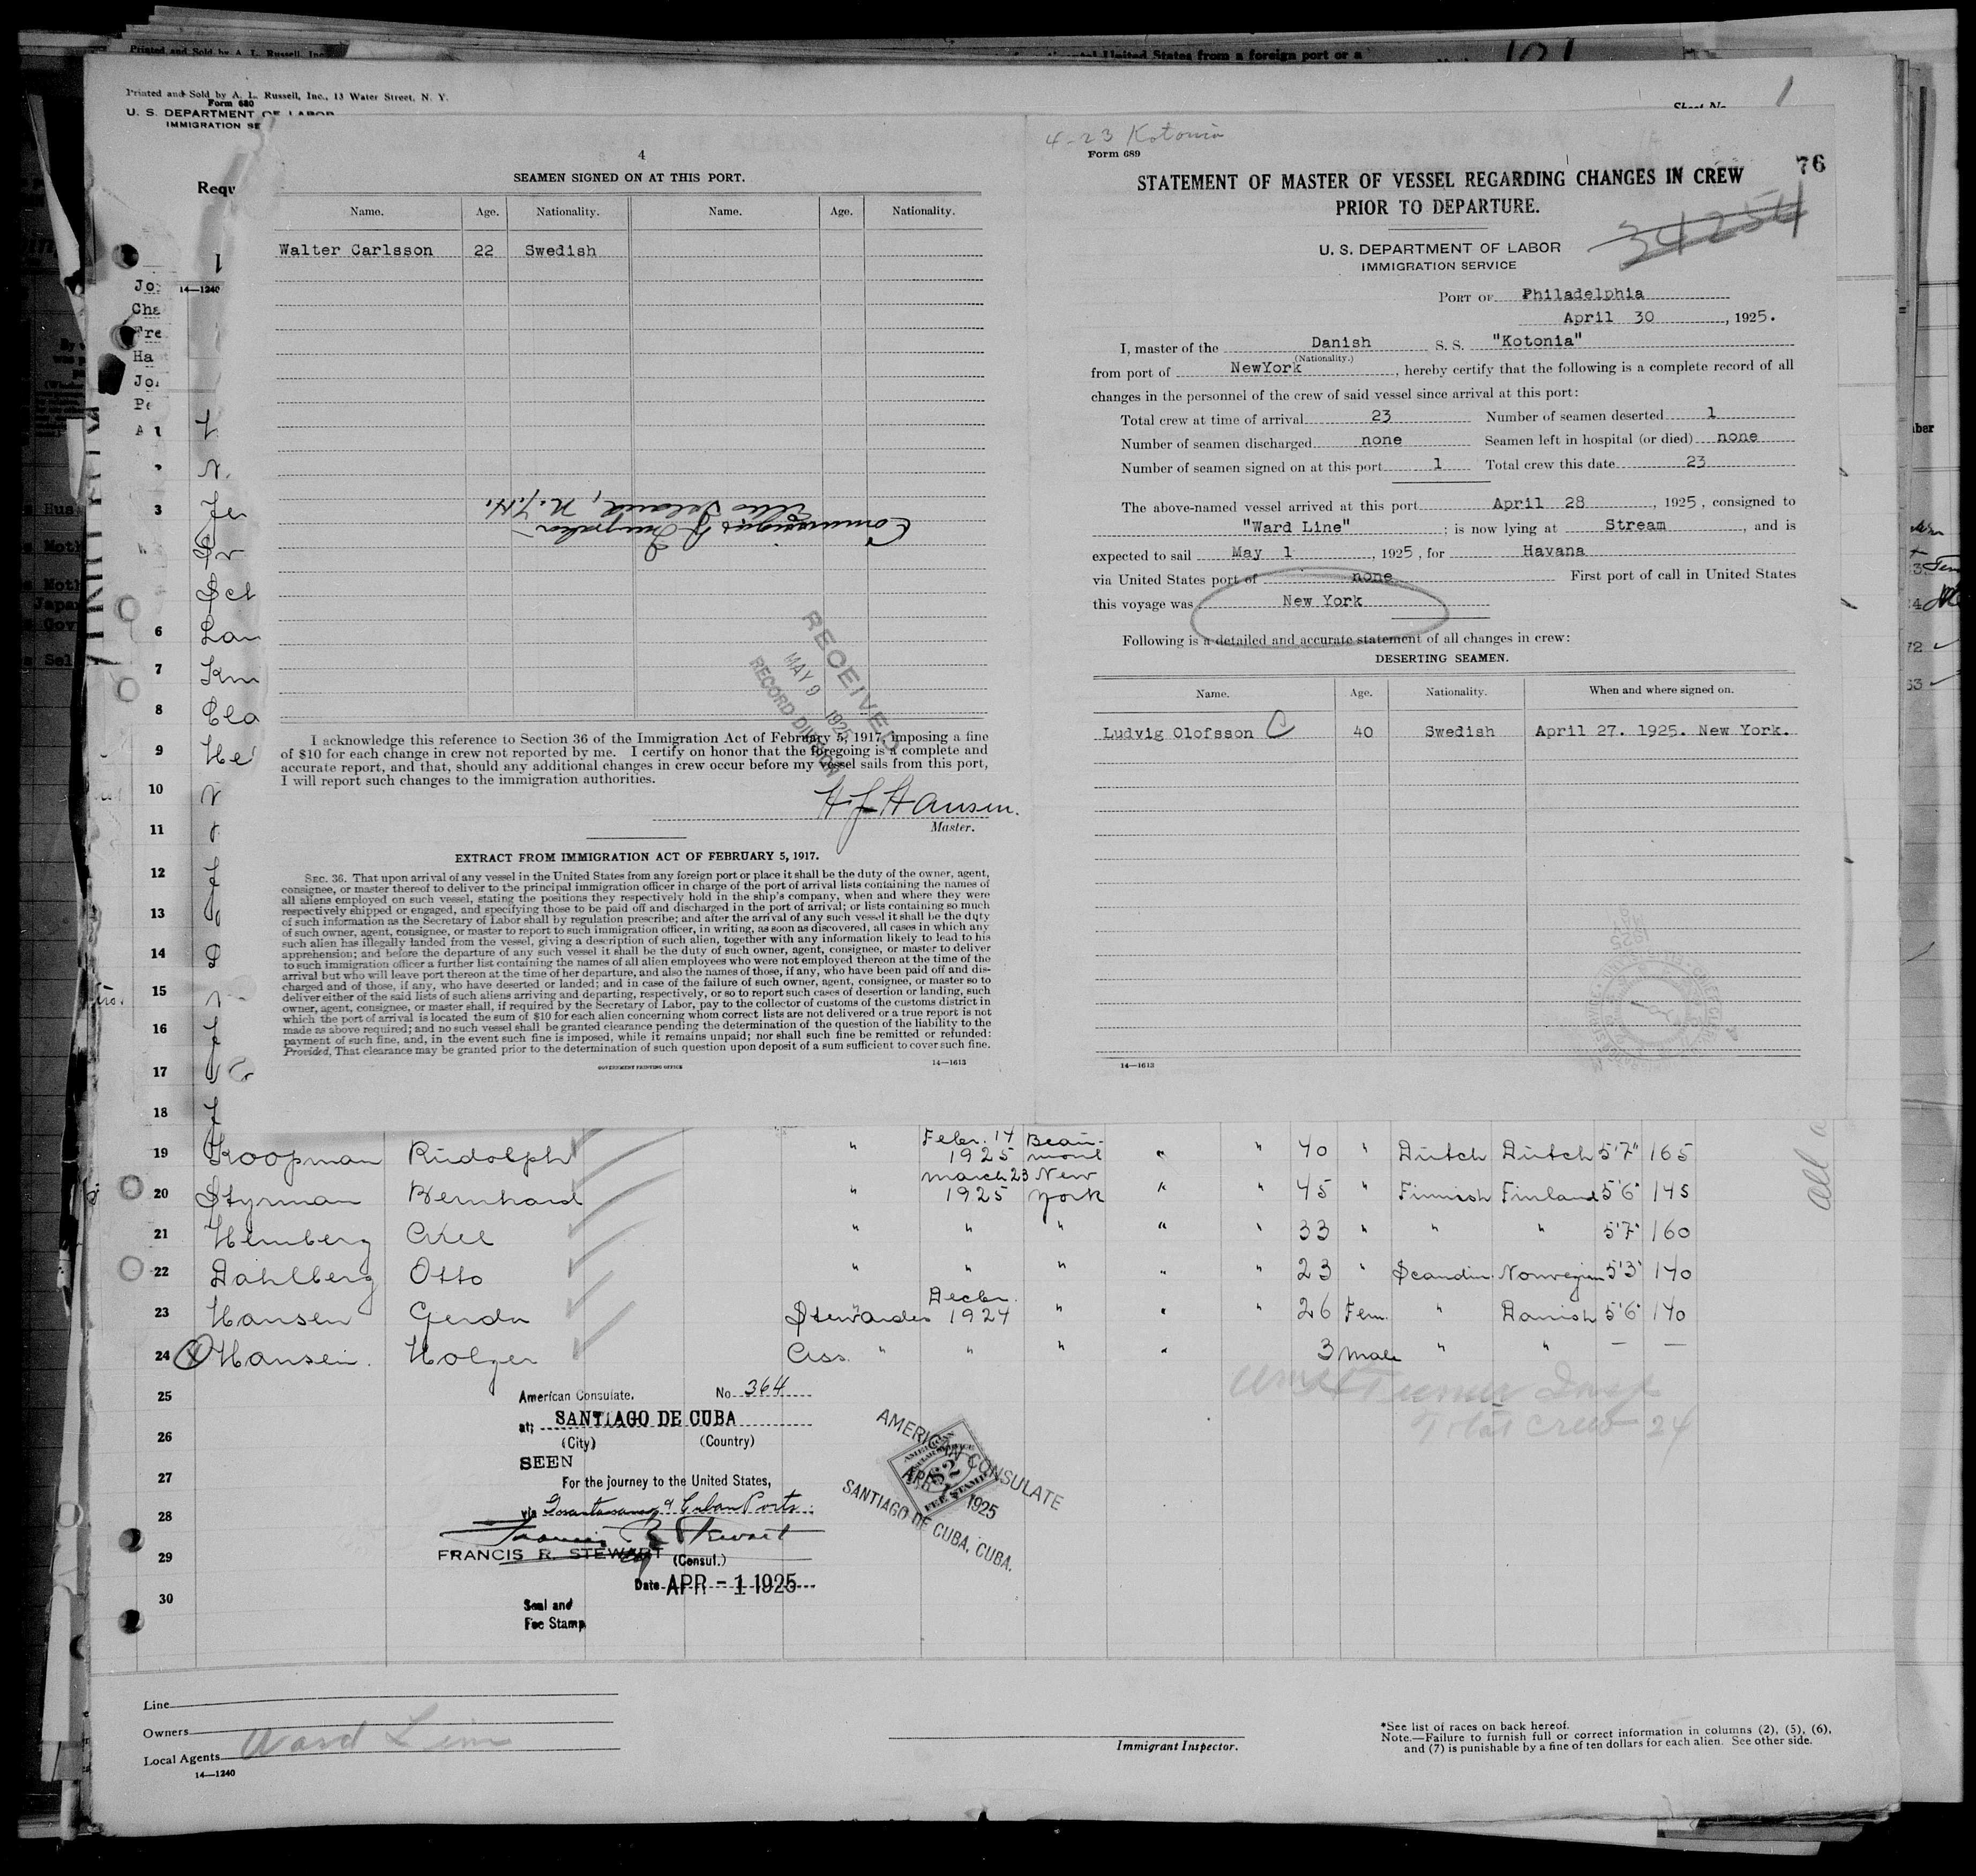 Printed and Sold by A. L. Russell, Inc.
United States from a foreign port or a
Printed and Sold by A. L. Russell, Inc., 13 Water Street, N. Y.
Form 680
U. S. DEPARTMENT OF LABOR
IMMIGRATION SE
1
4
SEAMEN SIGNED ON AT THIS PORT.
Name. Age. Nationality. Name. Age. Nationality.
Walter Carlsson 22 Swedish
Commissioner of Immigration
Ellis Island, N.Y.H.
RECEIVED
MAY 9 1925
RECORD DIVISION
I acknowledge this reference to Section 36 of the Immigration Act of February 5, 1917, imposing a fine
of $10 for each change in crew not reported by me. I certify on honor that the foregoing is a complete and
accurate report, and that, should any additional changes in crew occur before my vessel sails from this port,
I will report such changes to the immigration authorities.
H. J. Hansen.
Master.
EXTRACT FROM IMMIGRATION ACT OF FEBRUARY 5, 1917.
SEC. 36. That upon arrival of any vessel in the United States from any foreign port or place it shall be the duty of the owner, agent,
consignee, or master thereof to deliver to the principal immigration officer in charge of the port of arrival lists containing the names of
all aliens employed on such vessel, stating the positions they respectively hold in the ship's company, when and where they were
respectively shipped or engaged, and specifying those to be paid off and discharged in the port of arrival; or lists containing so much
of such information as the Secretary of Labor shall by regulation prescribe; and after the arrival of any such vessel it shall be the duty
of such owner, agent, consignee, or master to report to such immigration officer, in writing, as soon as discovered, all cases in which any
such alien has illegally landed from the vessel, giving a description of such alien, together with any information likely to lead to his
apprehension; and before the departure of any such vessel it shall be the duty of such owner, agent, consignee, or master to deliver
to such immigration officer a further list containing the names of all alien employees who were not employed thereon at the time of the
arrival but who will leave port thereon at the time of her departure, and also the names of those, if any, who have been paid off and dis-
charged and of those, if any, who have deserted or landed; and in case of the failure of such owner, agent, consignee, or master so to
deliver either of the said lists of such aliens arriving and departing, respectively, or so to report such cases of desertion or landing, such
owner, agent, consignee, or master shall, if required by the Secretary of Labor, pay to the collector of customs of the customs district in
which the port of arrival is located the sum of $10 for each alien concerning whom correct lists are not delivered or a true report is not
made as above required; and no such vessel shall be granted clearance pending the determination of the question of the liability to the
payment of such fine, and, in the event such fine is imposed, while it remains unpaid; nor shall such fine be remitted or refunded:
Provided, That clearance may be granted prior to the determination of such question upon deposit of a sum sufficient to cover such fine.
GOVERNMENT PRINTING OFFICE 14—1613
4-23 Kotonia
Form 689
76
STATEMENT OF MASTER OF VESSEL REGARDING CHANGES IN CREW
PRIOR TO DEPARTURE.
34254
U. S. DEPARTMENT OF LABOR
IMMIGRATION SERVICE
PORT OF Philadelphia
April 30, 1925.
I, master of the Danish S. S. "Kotonia"
(Nationality.)
from port of NewYork, hereby certify that the following is a complete record of all
changes in the personnel of the crew of said vessel since arrival at this port:
Total crew at time of arrival 23 Number of seamen deserted 1
Number of seamen discharged none Seamen left in hospital (or died) none
Number of seamen signed on at this port 1 Total crew this date 23
The above-named vessel arrived at this port April 28, 1925, consigned to
"Ward Line"; is now lying at Stream, and is
expected to sail May 1, 1925, for Havana
via United States port of none First port of call in United States
this voyage was New York
Following is a detailed and accurate statement of all changes in crew:
DESERTING SEAMEN.
Name. Age. Nationality. When and where signed on.
Ludvig Olofsson C 40 Swedish April 27. 1925. New York.
14—1613
19 Koopman Rudolph " Febr. 14 1925 Beaumont " " 40 " Dutch Dutch 5'7" 165
20 Styrman Bernhard " March 23 1925 New York " " 45 " Finnish Finland 5'6" 145
21 Hemberg Axel " " " " " 33 " " " 5'7" 160
22 Dahlberg Otto " " " " " 23 " Scandin. Norwegian 5'3" 140
23 Hansen Gerda Stewardes Decbr. 1924 " " " 26 Fem. " Danish 5'6" 140
24 Hansen. Holger Ass. " " " " 3 male " " — —
Total Crew 24
25
26
27
28
29
30
American Consulate. No. 364
at; SANTIAGO DE CUBA
(City) (Country)
SEEN
For the journey to the United States,
via Guantanamo & Cuban Ports.
Francis R Stewart
FRANCIS R. STEWART (Consul.)
Date APR - 1 1925
Seal and
Fee Stamp
AMERICAN CONSULATE
APR 1 1925
SANTIAGO DE CUBA, CUBA.
$2
FEE STAMP
Line
Owners
Local Agents Ward Line
14—1240
Immigrant Inspector.
*See list of races on back hereof.
Note.—Failure to furnish full or correct information in columns (2), (5), (6),
and (7) is punishable by a fine of ten dollars for each alien. See other side.